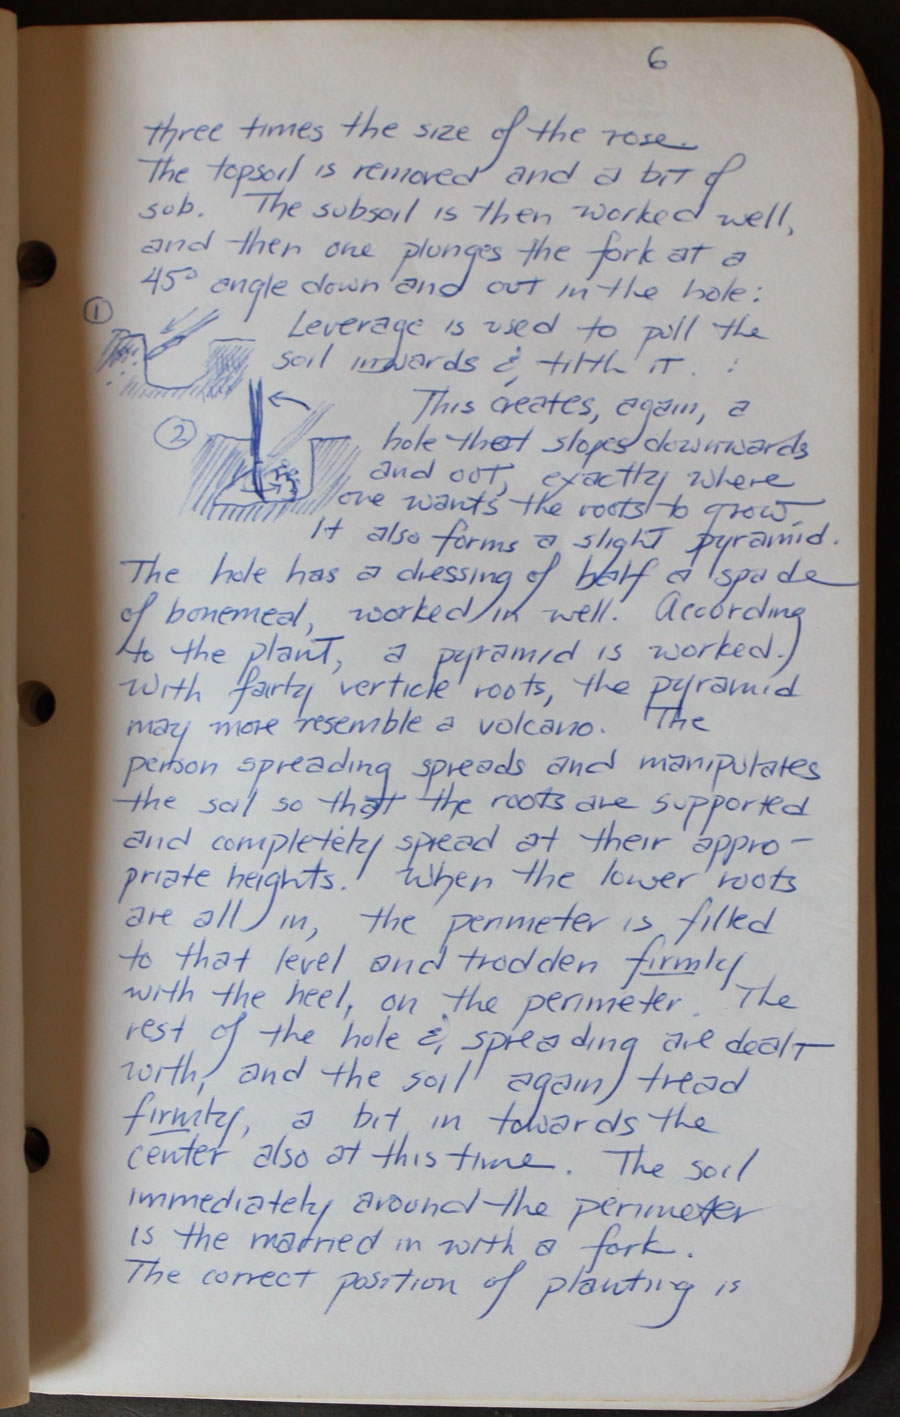 6
three times the size of the rose.
The topsoil is removed and a bit of
sub. The subsoil is then worked well,
and then one plunges the fork at a
45° angle down and out in the hole:
①
Leverage is used to pull the
soil inwards & tilth it. :
②
This creates, again, a
hole that slopes downwards
and out, exactly where
one wants the roots to grow.
It also forms a slight pyramid.
The hole has a dressing of half a spade
of bonemeal, worked in well. According
to the plant, a pyramid is worked.
With fairly verticle roots, the pyramid
may more resemble a volcano. The
person spreading spreads and manipulates
the soil so that the roots are supported
and completely spread at their appro-
priate heights. When the lower roots
are all in, the perimeter is filled
to that level and trodden firmly
with the heel, on the perimeter. The
rest of the hole & spreading are dealt
with, and the soil again tread
firmly, a bit in towards the
center also at this time. The soil
immediately around the perimeter
is the married in with a fork.
The correct position of planting is